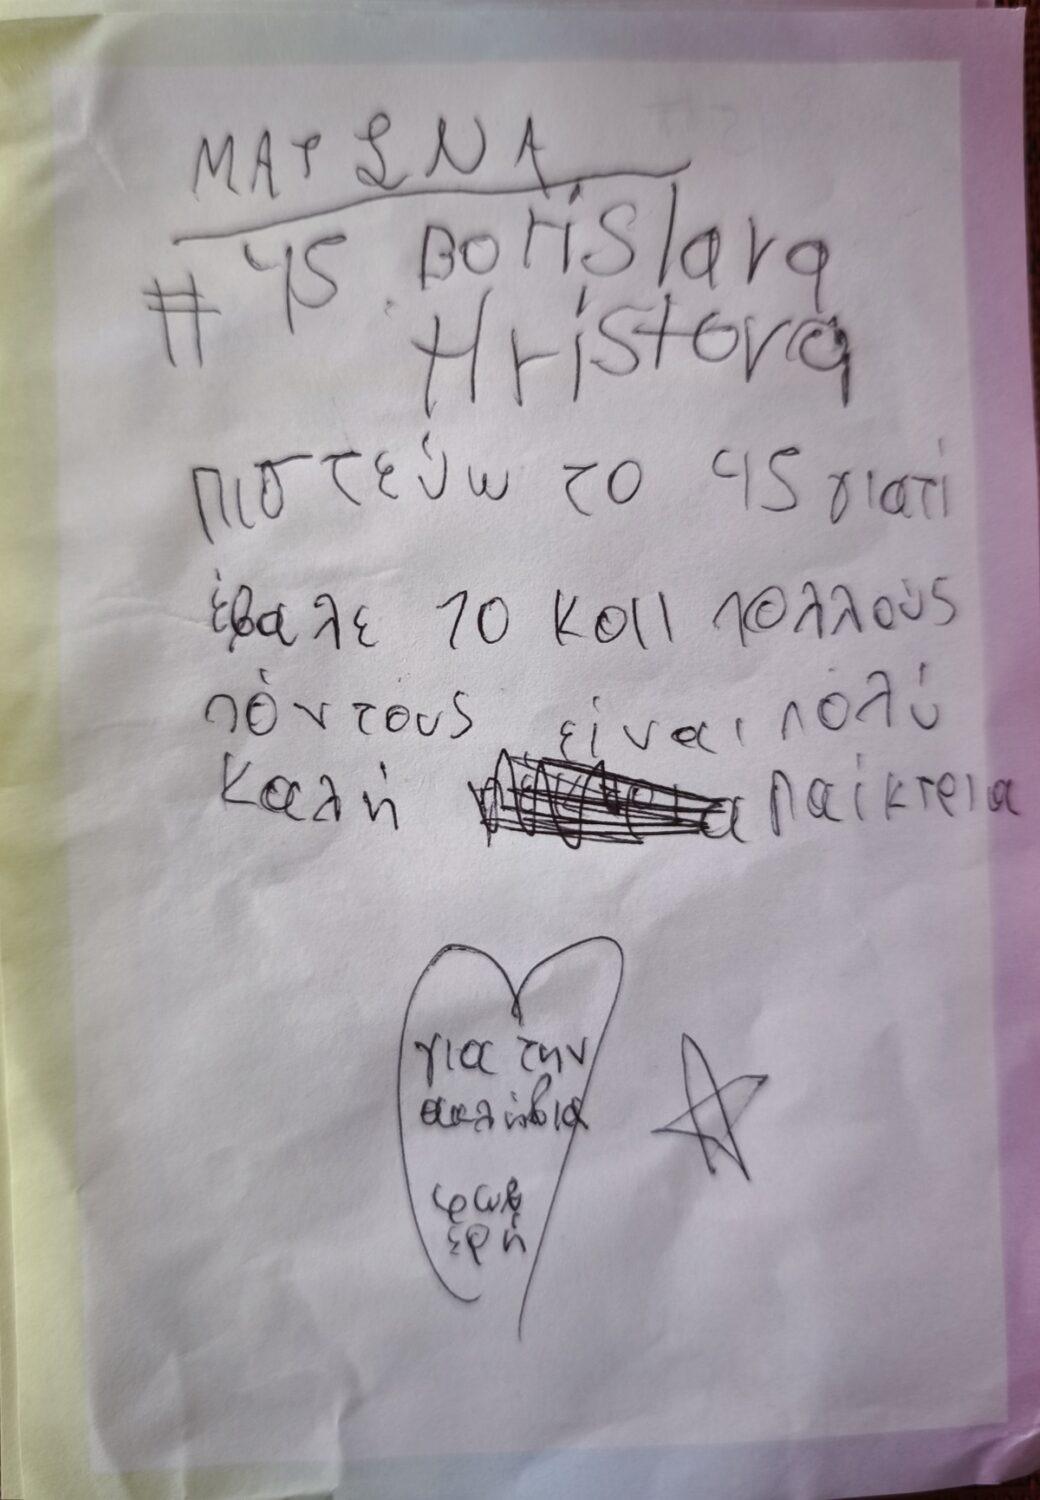 ΜΑΤΙΝΑ
# 45 Borislava
Hristova
πιστεύω το 45 γιατί
έβαλε 10 και πολλούς
πόντους είναι πολύ
καλή παίκτρια
για την